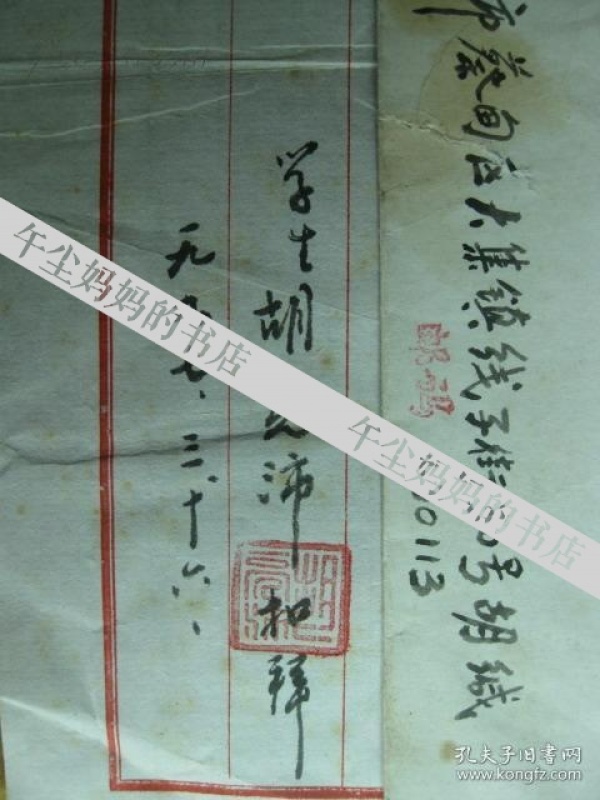 市蔡甸区大集镇线子街号胡缄
邮码
0113
学生胡沛和拜
一九九七、三、十六、
午尘妈妈的书店
午尘妈妈的书店
孔夫子旧书网
www.kongfz.com